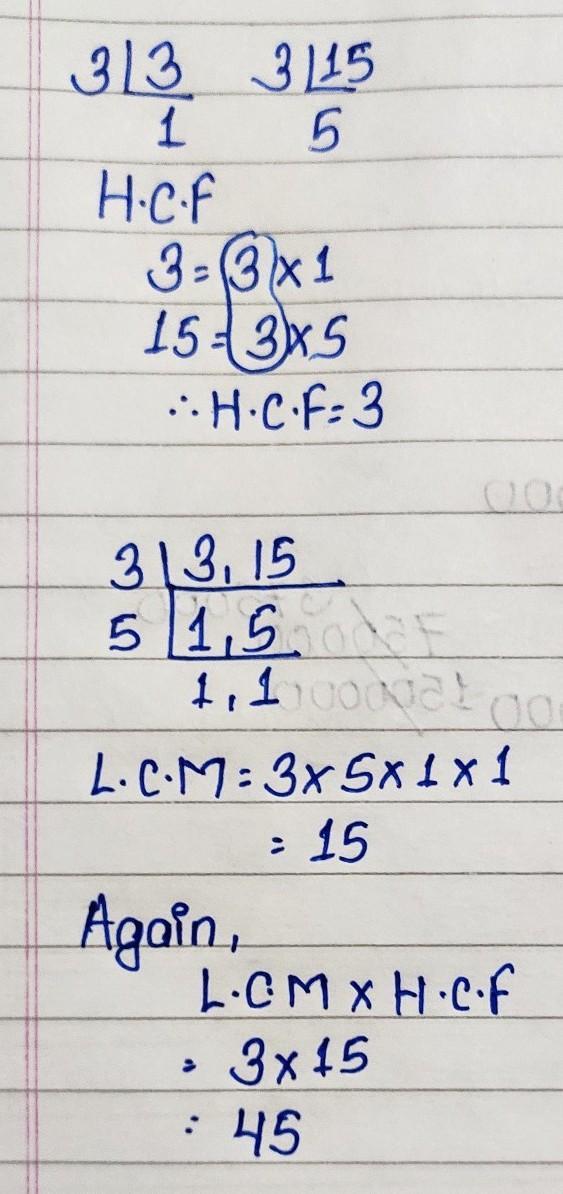 3|3 3|15
1 5
H.C.F
3=3×1
15=3×5
∴H.C.F=3
3|3,15
5|1,5
1,1
L.C.M=3×5×1×1
=15
Again,
L.C.M×H.C.F
=3×15
=45